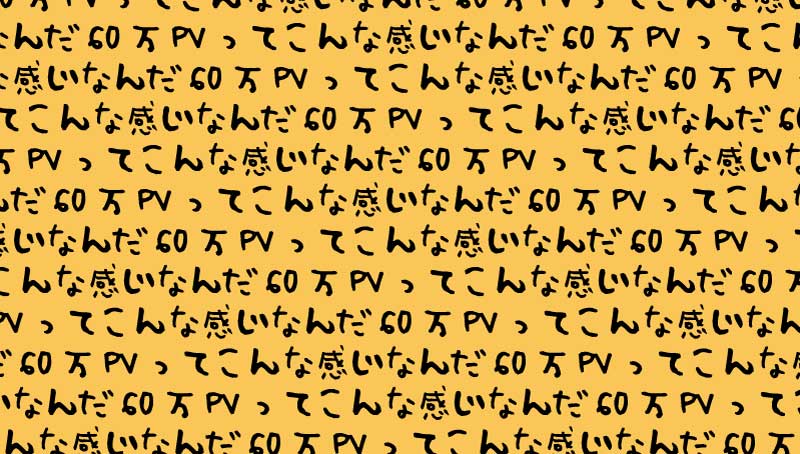 んな感じなんだ60万PVってこんな感
なんだ60万PVってこんな感じなんだ60万PVってこん
な感じなんだ60万PVってこんな感じなんだ60万PV
てこんな感じなんだ60万PVってこんな感じなんだ60
万PVってこんな感じなんだ60万PVってこんな感じな
んだ60万PVってこんな感じなんだ60万PVってこんな
感じなんだ60万PVってこんな感じなんだ60万PVっ
こんな感じなんだ60万PVってこんな感じなんだ60万
PVってこんな感じなんだ60万PVってこんな感じなん
だ60万PVってこんな感じなんだ60万PVってこんな感
なんだ60万PVってこんな感じなんだ60万PVってこ
んな感じなんだ60万PVってこんな感じなんだ60万PV